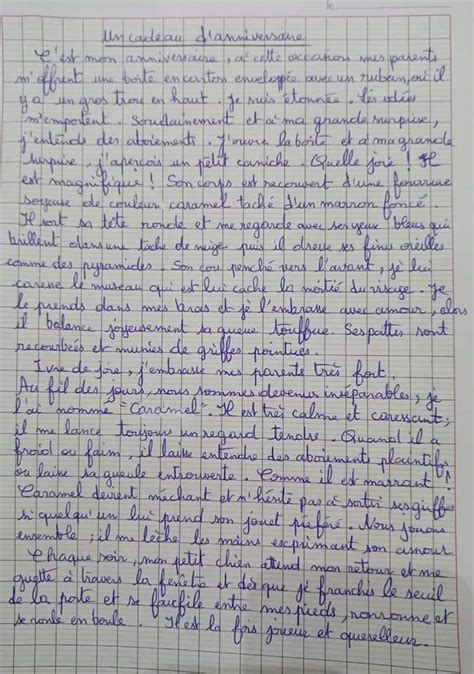 le
Un cadeau d'anniversaire
C'est mon anniversaire, a' cette occasion mes parents
m'offrent une boîte en carton enveloppée avec un ruban, où il
y a un gros trou en haut. Je suis étonnée. Les idées
m'emportent. Soudainement et a' ma grande surprise,
j'entends des aboiements. J'ouvre la boîte et a' ma grande
surprise, j'aperçois un petit caniche. Quelle joie ! Il
est magnifique ! Son corps est recouvert d'une fourrure
soyeuse de couleur caramel taché d'un marron foncé.
Il sort sa tête ronde et me regarde avec ses yeux bleus qui
brillent dans une tache de neige puis il dresse ses fines oreilles
comme des pyramides. Son cou penché vers l'avant, je lui
caresse le museau qui est lui cache la moitié du visage. Je
le prends dans mes bras et je l'embrasse avec amour, alors
il balance joyeusement sa queue touffue. Ses pattes sont
recourbées et munies de griffes pointues.
Ivre de joie, j'embrasse mes parents très fort.
Au fil des jours, nous sommes devenus inséparables, je
l'ai nommé "Caramel". Il est très calme et caressant,
il me lance toujours un regard tendre. Quand il a
froid ou faim, il laisse entendre des aboiements plaintifs
ou laisse sa gueule entrouverte. Comme il est marrant !
Caramel devient méchant et n'hésite pas a' sortir ses griffes
si quelqu'un lui prend son jouet préféré. Nous jouons
ensemble ; il me lèche les mains exprimant son amour
Chaque soir, mon petit chien attend mon retour et me
guette à travers la fenêtre et dès que je franchis le seuil
de la porte et se faufile entre mes pieds, ronronne et
se roule en boule. Il est la fois joueur et querelleur.